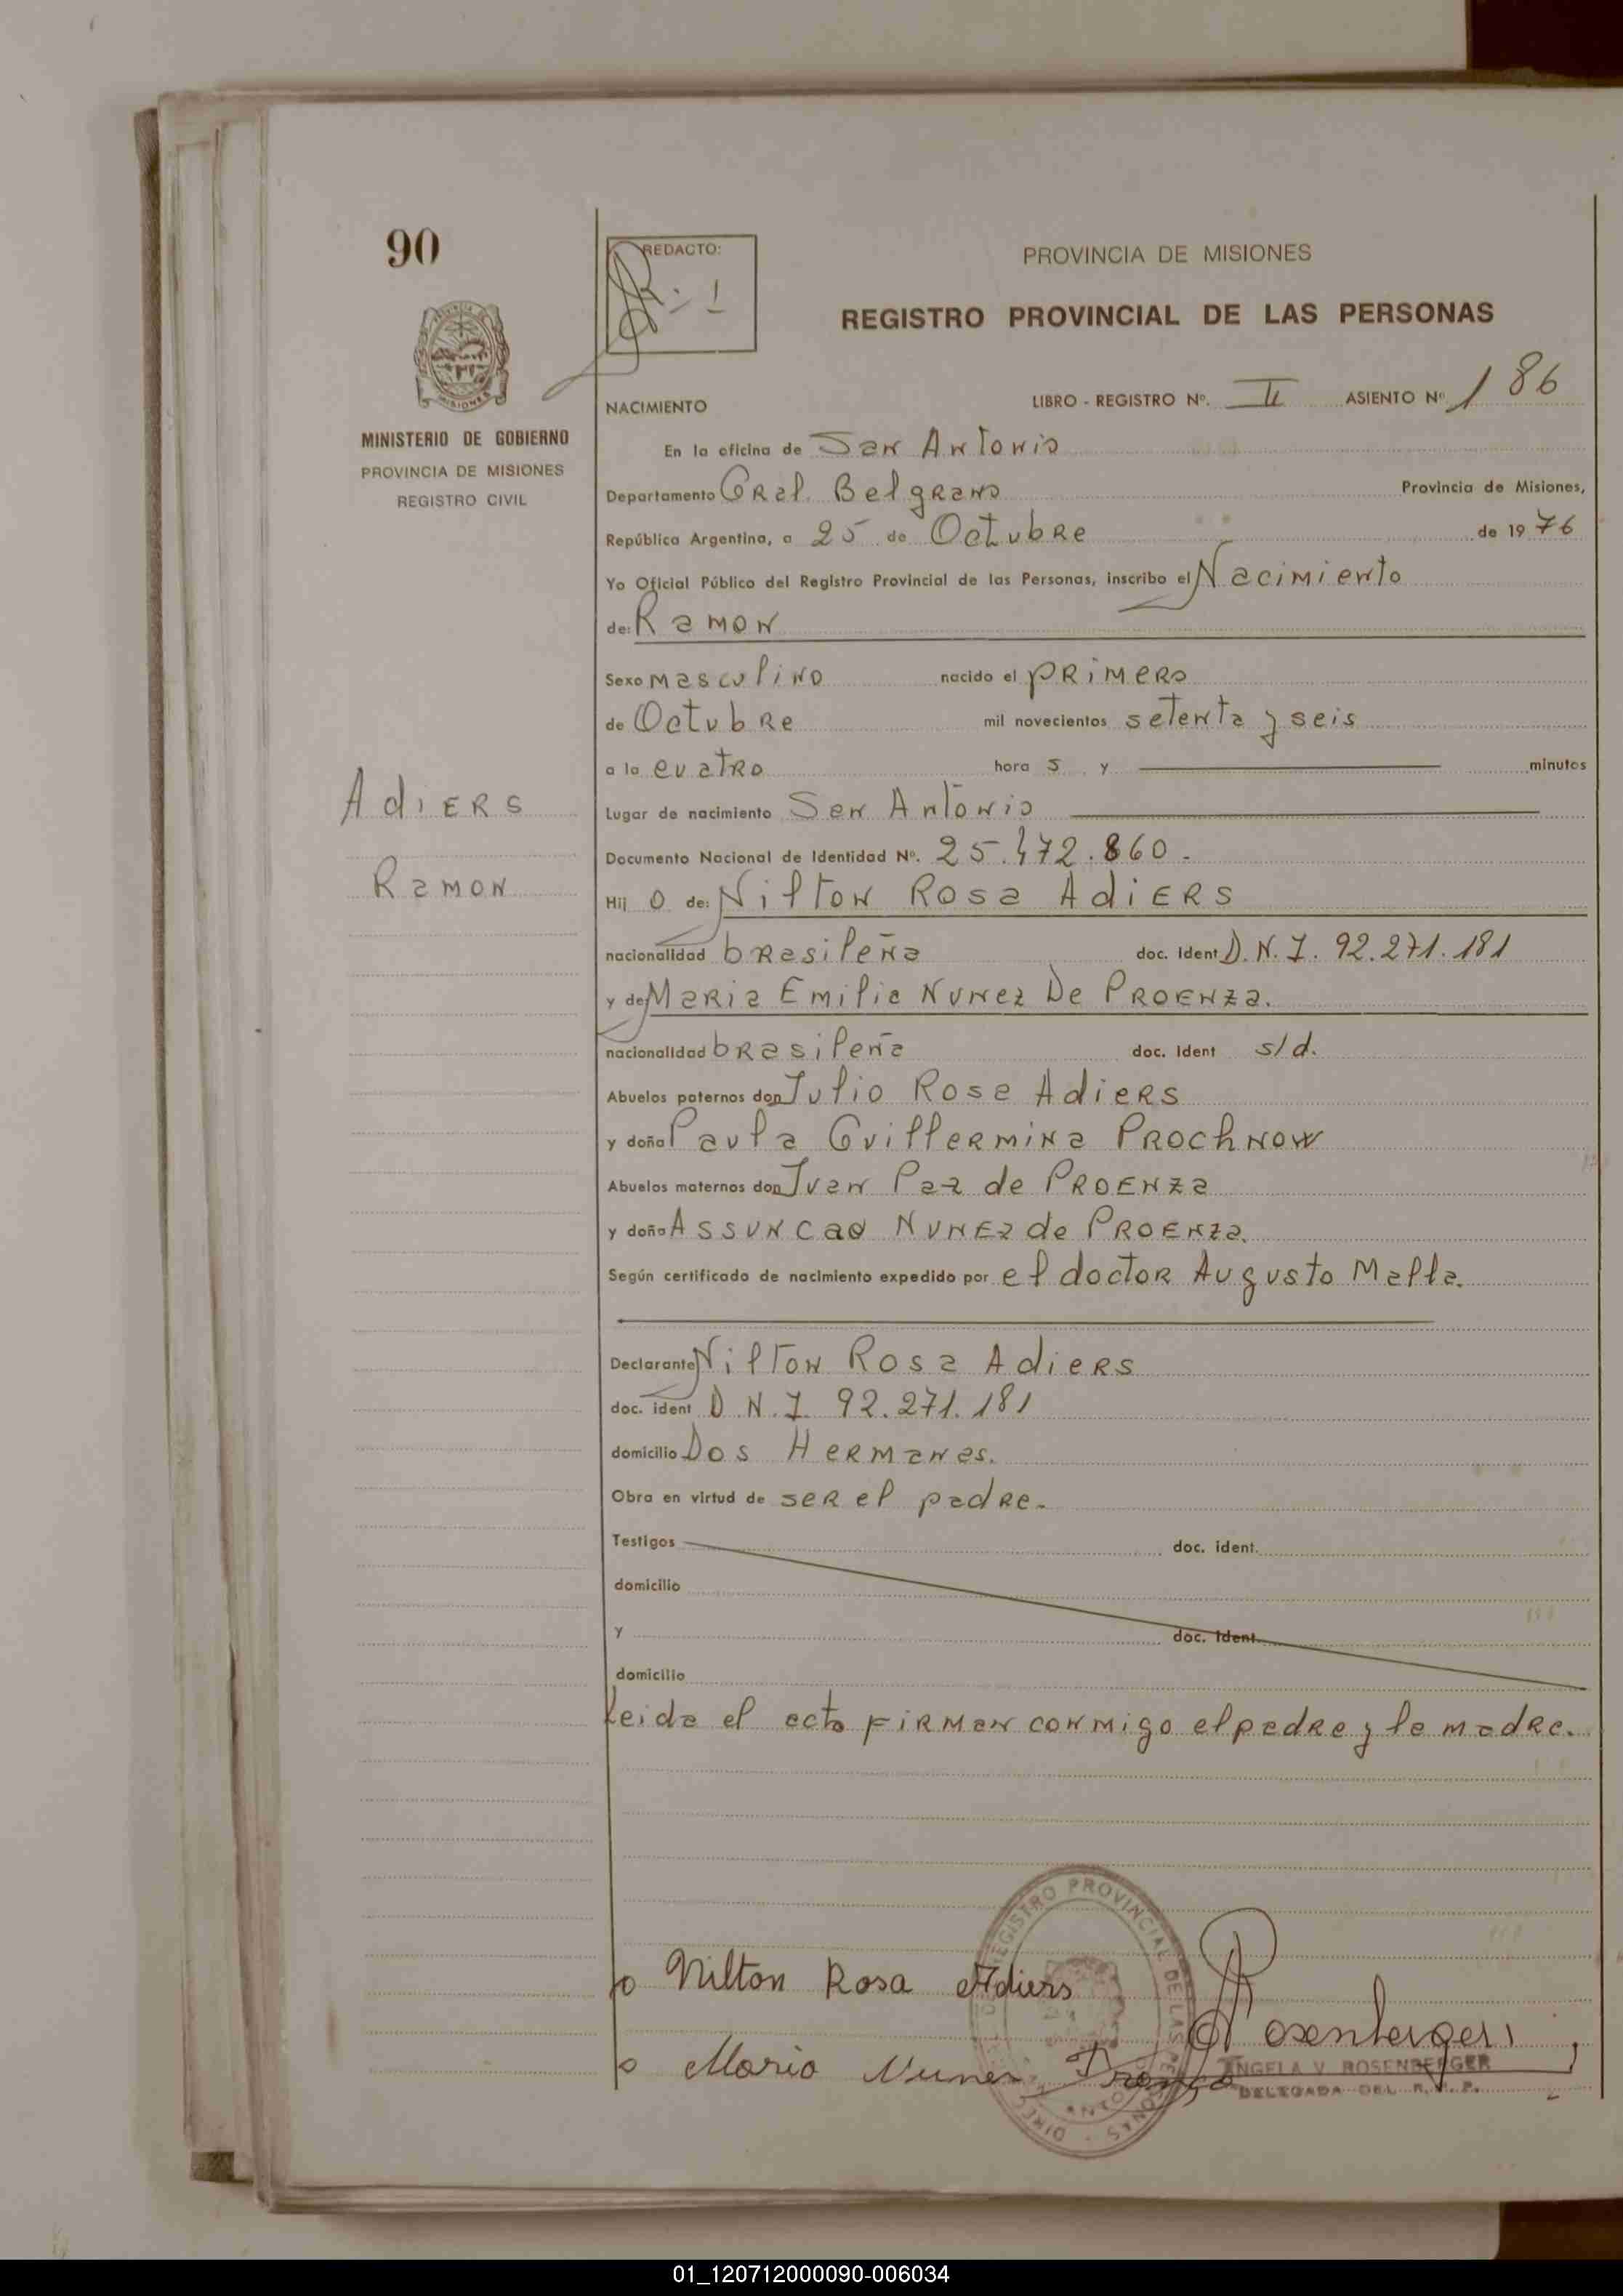 90
REDACTO:
PROVINCIA DE MISIONES
REGISTRO PROVINCIAL DE LAS PERSONAS
MINISTERIO DE GOBIERNO
PROVINCIA DE MISIONES
REGISTRO CIVIL
NACIMIENTO LIBRO - REGISTRO Nº. II ASIENTO Nº 186
En la oficina de San Antonio
Departamento Gral. Belgrano Provincia de Misiones,
República Argentina, a 25 de Octubre de 1976
Yo Oficial Público del Registro Provincial de las Personas, inscribo el Nacimiento
de: Ramon
Sexo masculino nacido el primero
de Octubre mil novecientos setenta y seis
a la cuatro hora s y minutos
Adiers
Ramon
Lugar de nacimiento San Antonio
Documento Nacional de Identidad Nº. 25.472.860.
Hij o de: Nilton Rosa Adiers
nacionalidad brasileña doc. ident D.N.I. 92.271.181
y de Maria Emilia Nunez De Proenza.
nacionalidad brasileña doc. ident s/d.
Abuelos paternos don Julio Rosa Adiers
y doña Paula Guillermina Prochnow
Abuelos maternos don Ivan Paz de Proenza
y doña Assuncao Nunez de Proenza.
Según certificado de nacimiento expedido por el doctor Augusto Malla.
Declarante Nilton Rosa Adiers
doc. ident D.N.I. 92.271.181
domicilio Dos Hermanas.
Obra en virtud de ser el padre.
Testigos doc. ident.
domicilio
y doc. ident.
domicilio
Leida el acta firman conmigo el padre y la madre.
Nilton Rosa Adiers
Maria Nunes
Rosenberger
ANGELA V. ROSENBERGER
DELEGADA DEL R. P. P.
REGISTRO PROVINCIAL DE LAS PERSONAS
01_120712000090-006034